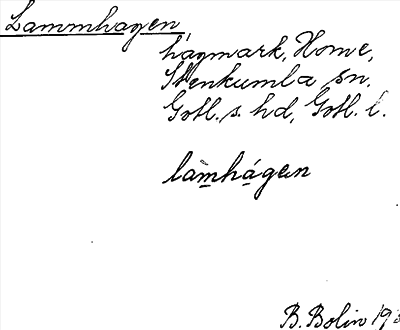 Lammhagen
hagmark, Home,
Stenkumla sn.
Gotl. s. hd, Gotl. l.
làmhágen
B. Bolin 193